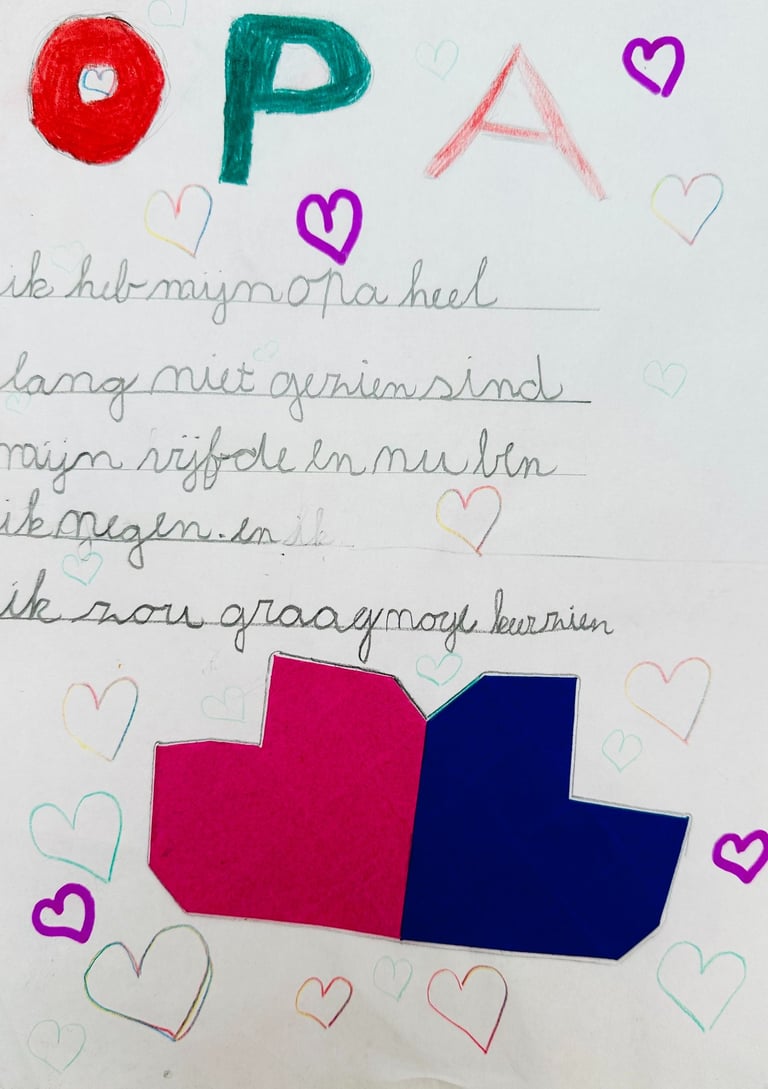 OPA
ik heb mijn opa heel
lang niet gezien sind
mijn vijfde en nu ben
ik negen. en ik
ik zou graag